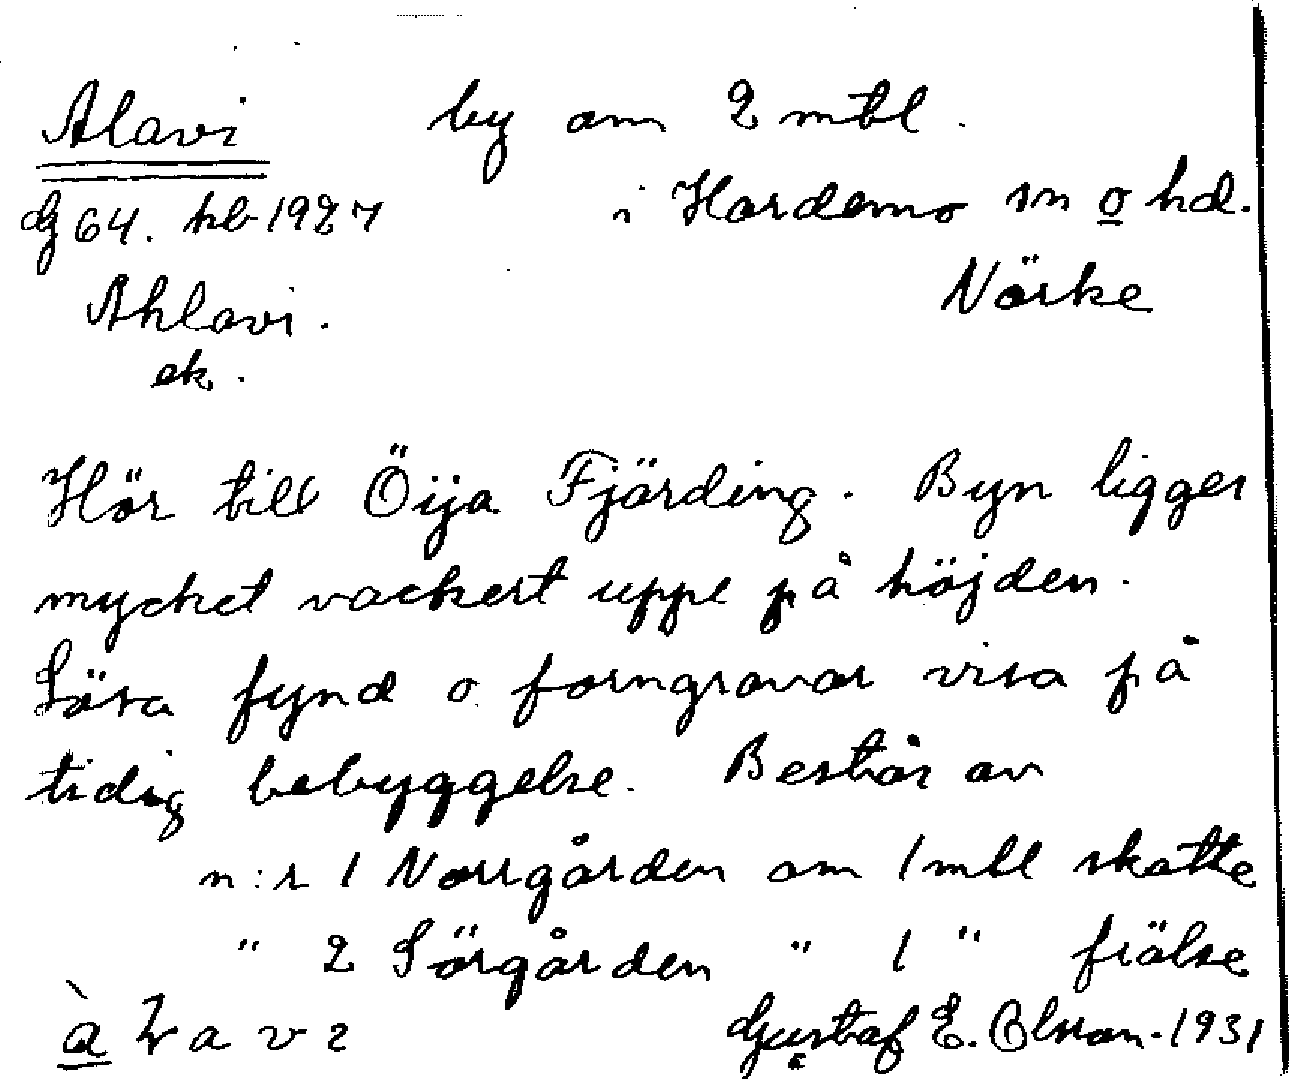 Alavi by om 2 mtl.
dg 64. hb 1927 i Hardemo sn o hd.
Ahlavi. Närke
ek.
Hör till Öija Fjärding. Byn ligger
mycket vackert uppe på höjden.
Lösa fynd o forngravar visa på
tidig bebyggelse. Består av
n:r 1 Norrgården om 1 mtl skatte
" 2 Sörgården " 1 " frälse
Gustaf E. Olsson. 1931